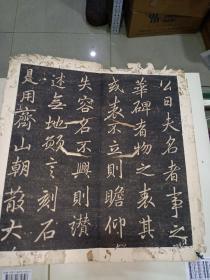 公曰夫名者事之
華碑者物之表其
或表不立則瞻仰
失容名不興則讚
述無地願言刻石
是用齊山朝散大